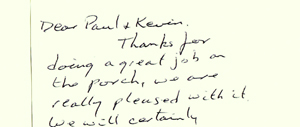 Dear Paul & Kevin.
Thanks for
doing a great job on
the porch, we are
really pleased with it
We will certainly